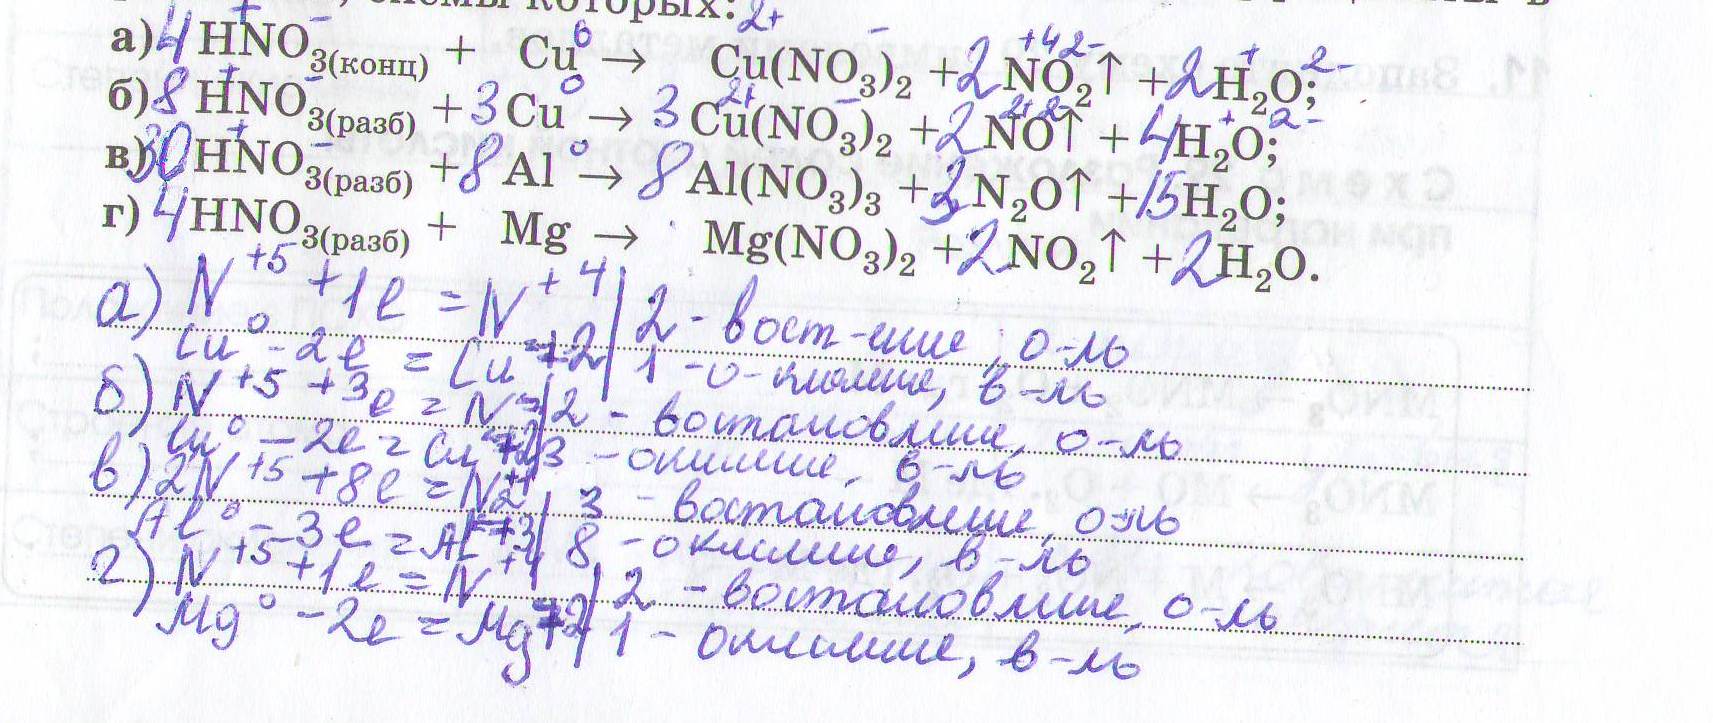 которых:
а) 4HNO₃(конц) + Cu⁰ → Cu(NO₃)₂ + 2NO₂↑ + 2H₂O;
б) 8HNO₃(разб) + 3Cu⁰ → 3Cu(NO₃)₂ + 2NO↑ + 4H₂O;
в) 30HNO₃(разб) + 8Al⁰ → 8Al(NO₃)₃ + 3N₂O↑ + 15H₂O;
г) 4HNO₃(разб) + Mg → Mg(NO₃)₂ + 2NO₂↑ + 2H₂O.
а) N⁺⁵ + 1e = N⁺⁴ | 2 - вост-ение, о-ль
Cu⁰ - 2e = Cu⁺² | 1 - о-кисление, в-ль
б) N⁺⁵ + 3e = N⁺² | 2 - востановление, о-ль
Cu⁰ - 2e = Cu⁺² | 3 - окисление, в-ль
в) 2N⁺⁵ + 8e = N₂⁺¹ | 3 - востановление, о-ль
Al⁰ - 3e = Al⁺³ | 8 - окисление, в-ль
г) N⁺⁵ + 1e = N⁺⁴ | 2 - востановление, о-ль
Mg⁰ - 2e = Mg⁺² | 1 - окисление, в-ль